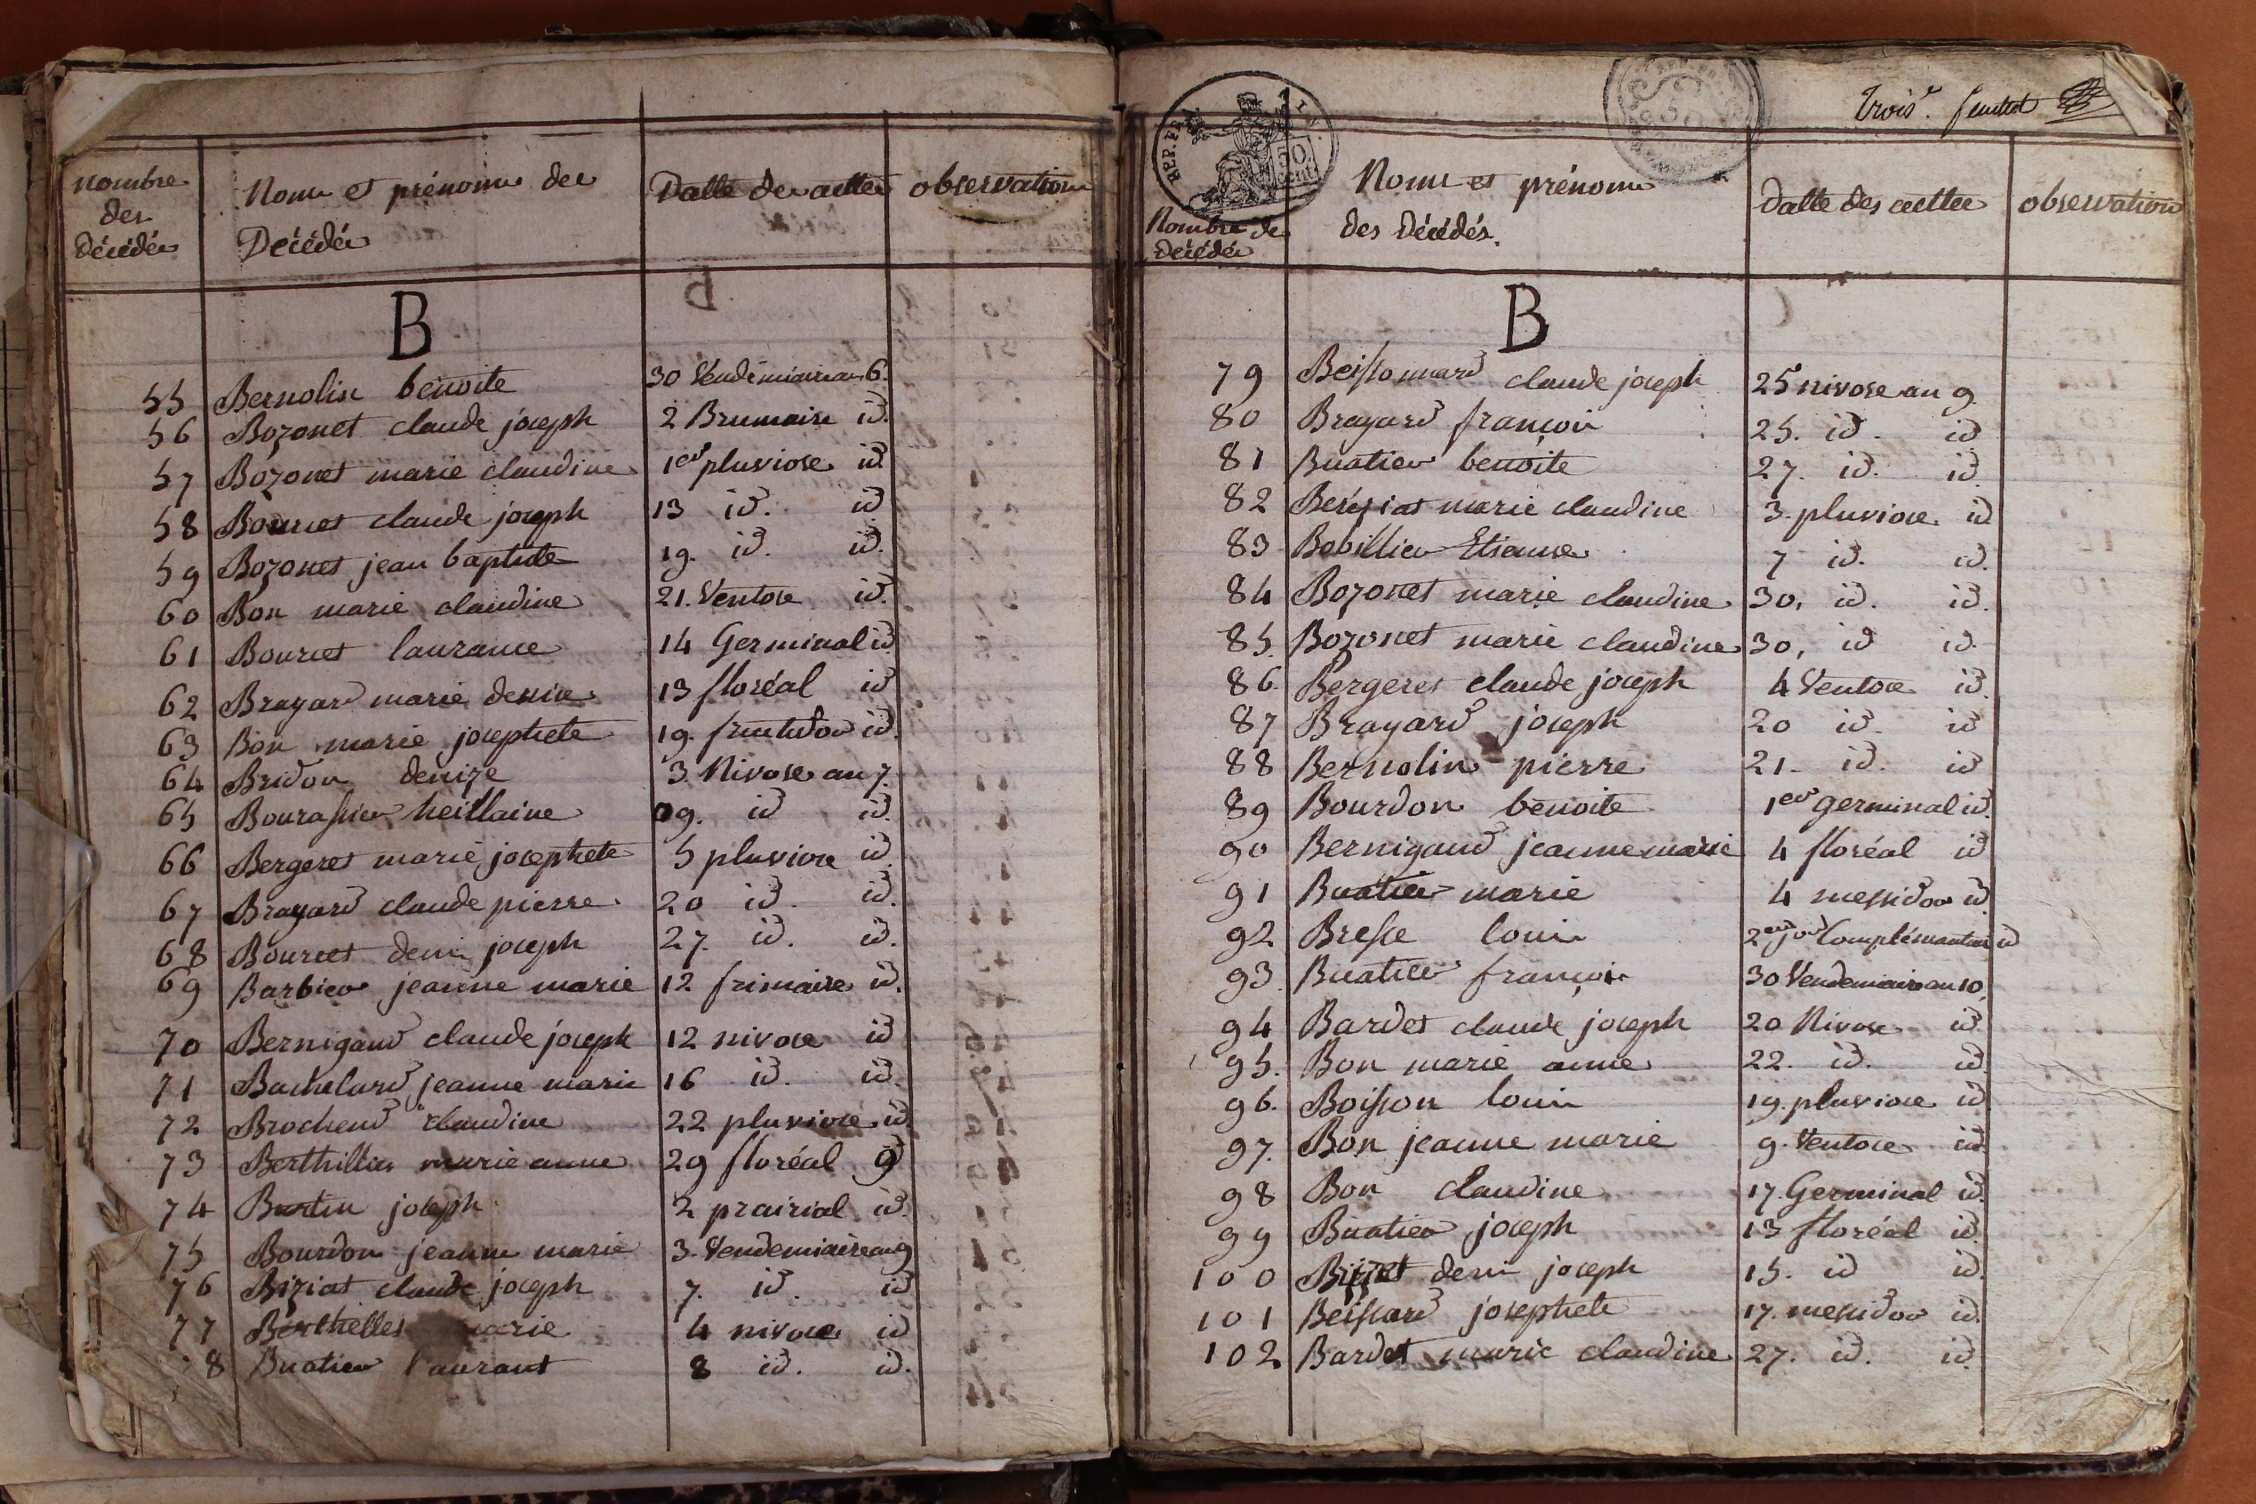 nombre
des
Décédés
Noms et prénoms des
Décédés
Datte des actes
observations
B
55 Bernolin benoite 30 Vendémiaire an 6.
56 Bozonet claude joseph 2 Brumaire id.
57 Bozonet marie claudine 1er pluviose id
58 Bourcet claude joseph 13 id. id
59 Bozonet jean baptiste 19. id. id.
60 Bon marie claudine 21. Ventose id.
61 Bourcet laurance 14 Germinal id.
62 Brayard marie denise 13 floréal id
63 Bon marie josephete 19. fructidor id.
64 Bridon denize 3. Nivose an 7.
65 heillaine 09. id id.
66 Bergeret marie josephete 5 pluviose id.
67 Brayard claude pierre 20 id. id.
68 Bourcet denis joseph 27. id. id.
69 Barbier jeanne marie 12 frimaire id.
70 Bernigaud claude joseph 12 nivose id
71 Bachelard jeanne marie 16 id. id.
72 Brochend claudine 22 pluviose id.
73 Berthillier marie anne 29 floréal
74 joseph 2 prairial id.
75 Bourdon jeanne marie 3. Vendemiaire an 9
76 Biziat claude joseph 7. id. id
77 Berthelles marie 4 nivose id
8 Buatier laurant 8 id. id.
Trois. feuillet
REP. FRA.
50
cent
Nombre de
Décédés
Noms et prénoms
des Décédés.
Datte des actes
observation
B
79 Beissonnard claude joseph 25 nivose an 9
80 Brayard françois 25. id. id
81 Buatier benoite 27. id. id.
82 Bereziat marie claudine 3. pluviose id
83 Bobillier Etienne 7 id. id.
84 Bozonet marie claudine 30, id. id.
85. Bozonet marie claudine 30, id id.
86. Bergeret claude joseph 4 Ventose id.
87 Brayard joseph 20 id. id
88 Bernolin pierre 21. id. id
89 Bourdon benoite 1er germinal id.
90 Bernigaud jeanne marie 4 floréal id
91 Buatier marie 4 messidor id.
92 Bresse louis 2 jour Complémantaire id
93. Buatier françois 30 Vendemiaire an 10,
94 Bardet claude joseph 20 Nivose id.
95. Bon marie anne 22. id. id.
96. Boisson louis 19. pluviose id
97. Bon jeanne marie 9. Ventose id
98 Bon claudine 17. Germinal id.
99 Buatier joseph 13 floréal id.
100 denis joseph 15. id id.
101 Beissard josephete 17. messidor id.
102 Bardet marie claudine 27. id. id.